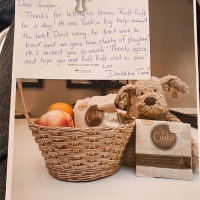 Dear Jumper,
Thanks for letting us borrow Ruff Ruff
for a day! He was such a big help around
the hotel. Don't worry, he didn't work too
hard and we gave him plenty of playtime.
He's missed you so much! Thanks again
and hope you and Ruff Ruff visit us soon!
Love,
Doubletree
Cookie